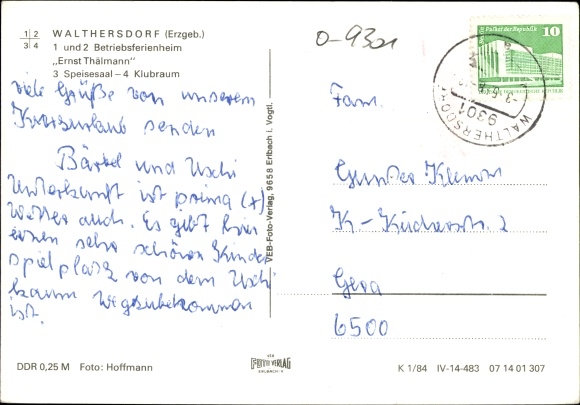 1 2
3 4
WALTHERSDORF (Erzgeb.)
1 und 2 Betriebsferienheim
„Ernst Thälmann"
3 Speisesaal – 4 Klubraum
viele Grüße von unserem
Kurzurlaub senden
Bärbel und Uschi
Unterkunft ist prima (x)
Wetter auch. Es gibt hier
einen sehr schönen Kinder
spielplatz von dem Uschi
kaum wegzubekommen
ist.
VEB-Foto-Verlag, 9658 Erlbach i. Vogtl.
DDR 0,25 M Foto: Hoffmann
FOTO VERLAG
ERLBACH
O-9301
Palast der Republik
10
WALTHERSDORF
9301
Fam.
Gunter
K.- 2
Gera
6500
K 1/84 IV-14-483 07 14 01 307